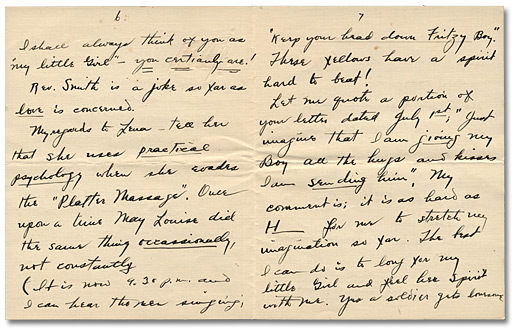 6
I shall always think of you as
"my little Girl" - you certianly are!
Rev. Smith is a joke so far as
love is concerned.
My regards to Lena - tell her
that she uses practical
psychology when she evades
the "Plaster Massage". Once
upon a time May Louise did
the same thing occassionally,
not constantly
(It is now 9.30 p.m. and
I can hear the men singing;
7
"Keep your head down Fritzy Boy."
These fellows have a spirit
hard to beat!
Let me quote a portion of
your letter dated July 1st; "Just
imagine that I am giving my
Boy all the hugs and kisses
I am sending him", My
comment is; it is as hard as
H___ for me to stretch my
imagination so far. The best
I can do is to long for my
little Girl and feel her spirit
with me. Yes a soldier gets lonesome